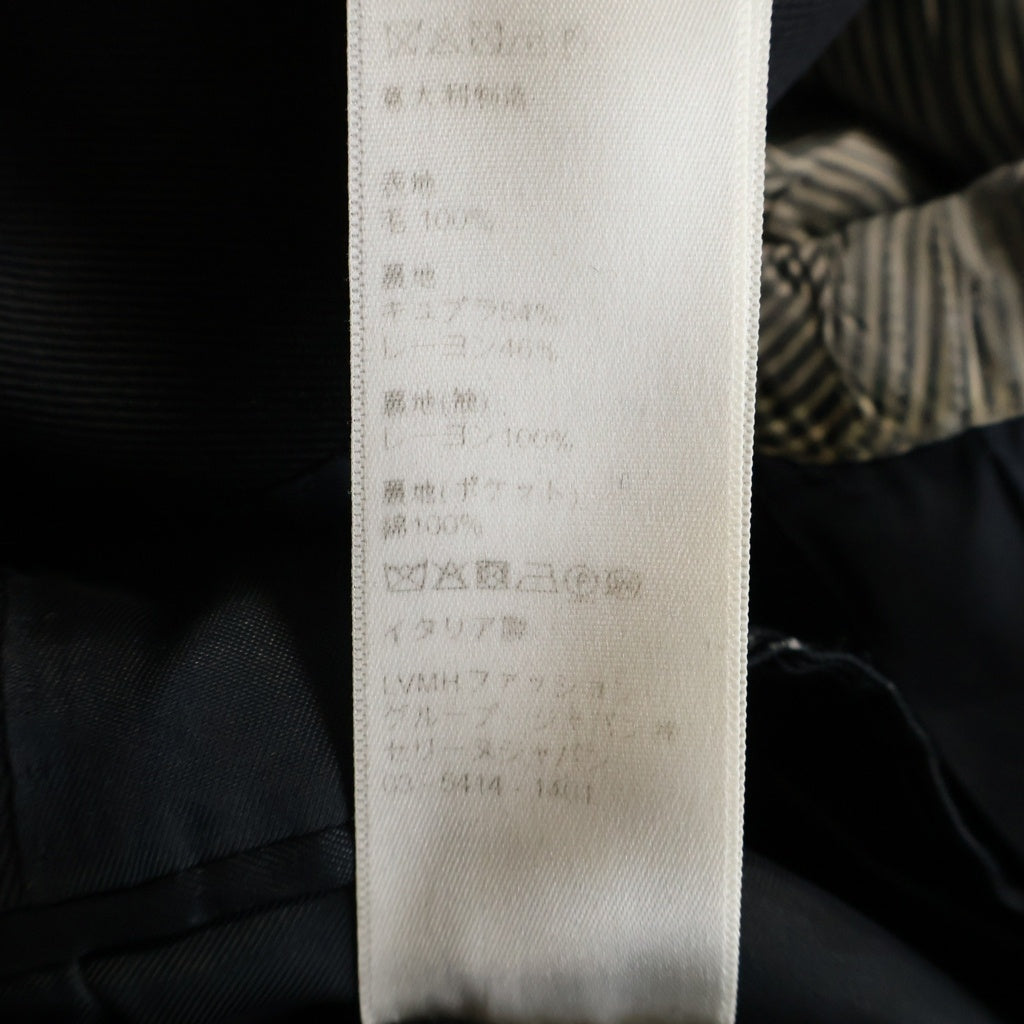 意大利制造
表地
毛 100%
裏地
キュプラ54%
レーヨン46%
裏地(袖)
レーヨン100%
裏地(ポケット)
綿100%
イタリア製
LVMHファッション
グループ ジャパン
セリーヌジャパン
03-5414-1401